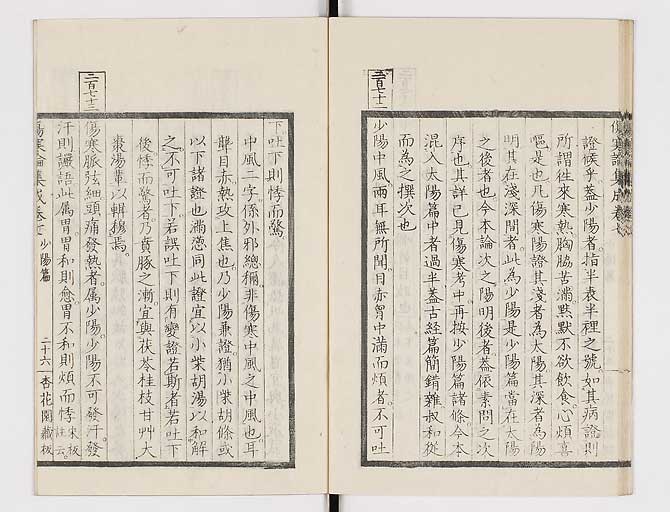 傷寒論集成卷七
證候乎蓋少陽者指半表半裡之號如其病證則
所謂往來寒熱胸脇苦滿默默不欲飲食心煩喜
嘔是也凡傷寒陽證其淺者為太陽其深者為陽
明其在淺深間者此為少陽是少陽篇當在太陽
之後者也今本論次之陽明後者蓋依素問之次
序也其詳已見傷寒考中再按少陽篇諸條今本
混入太陽篇中者過半蓋古經篇簡錯雜叔和從
而為之撰次也
二百七十二
少陽中風兩耳無所聞目赤胷中滿而煩者不可吐
下吐下則悸而驚
中風二字係外邪總稱非傷寒中風之中風也耳
聾目赤熱攻上焦也乃少陽兼證猶小柴胡條或
以下諸證也滿懣同此證宜以小柴胡湯以和解
之不可吐下若誤吐下則有變證若斯者若吐下
後悸而驚者乃賁豚之漸宜與茯苓桂枝甘艸大
棗湯輩以輯穆焉
二百七十三
傷寒脈弦細頭痛發熱者属少陽少陽不可發汗發
汗則讝語此属胃胃和則愈胃不和則煩而悸 宋板註云
傷寒論集成卷七 少陽篇 二十六 杏花園藏板